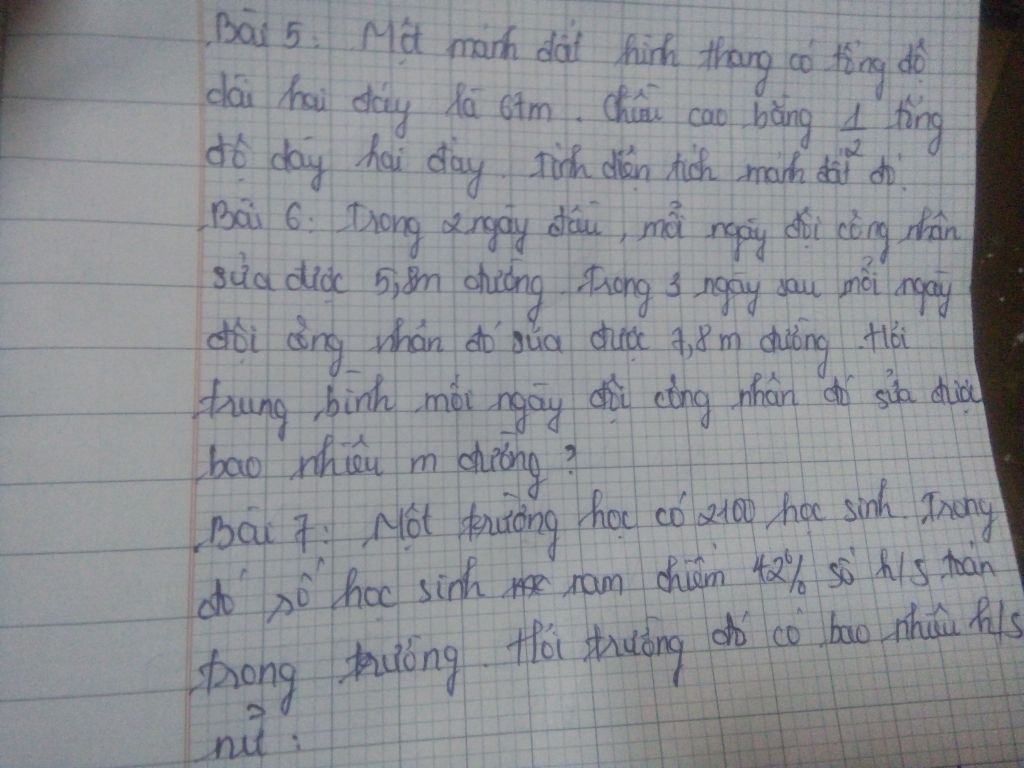 Bài 5: Một mảnh đất hình thang có tổng độ
dài hai đáy là 67m. Chiều cao bằng 1/2 tổng
độ dáy hai đáy. Tính diện tích mảnh đất đó.
Bài 6: Trong 2 ngày đầu, mỗi ngày đội công nhân
sửa được 5,8m đường. Trong 3 ngày sau mỗi ngày
đội công nhân đó sửa được 7,8m đường. Hỏi
trung bình mỗi ngày đội công nhân đó sửa được
bao nhiêu m đường?
Bài 7: Một trường học có 2100 học sinh Trong
đó số học sinh nam chiếm 42% số h/s toàn
trong trường. Hỏi trường đó có bao nhiêu h/s
nữ: